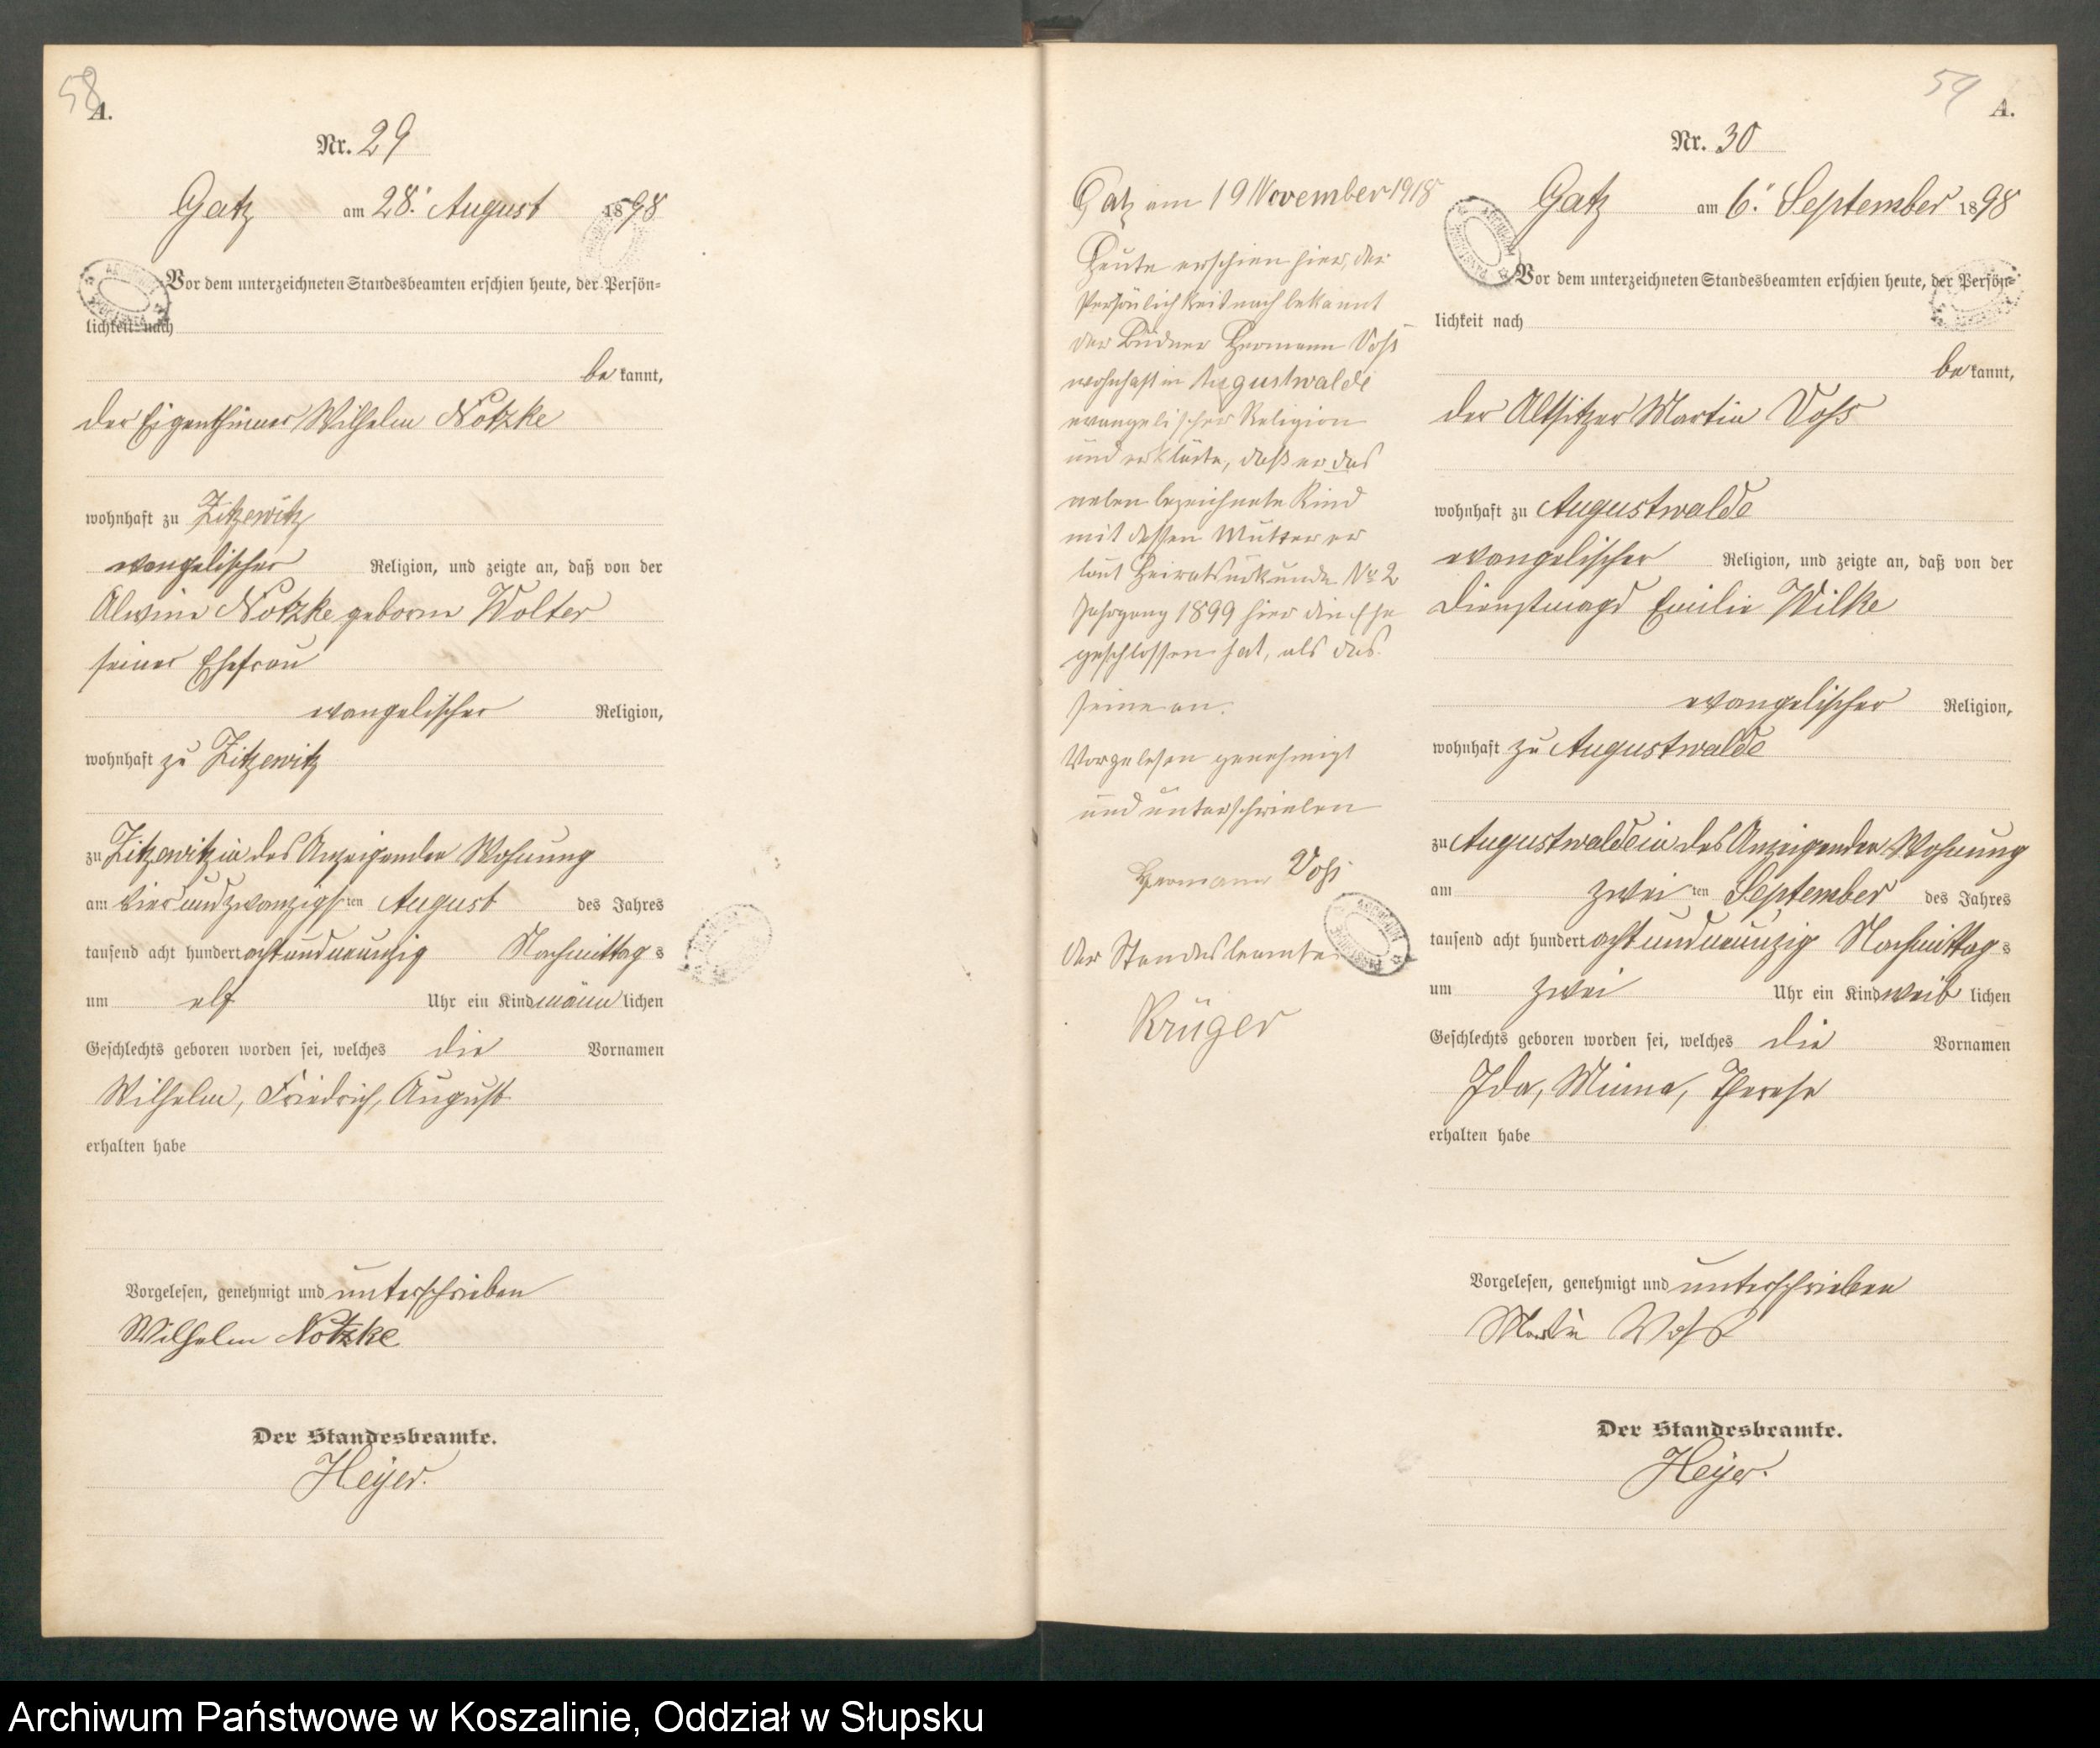 58
A.
Nr. 29
Gatz am 28. August 1898
Vor dem unterzeichneten Standesbeamten erschien heute, der Persön-
lichkeit nach
be kannt,
der Eigenthümer Wilhelm Notzke
wohnhaft zu Zitzewitz
evangelischer Religion, und zeigte an, daß von der
Alwine Notzke geborne Wolter
seiner Ehefrau
evangelischer Religion,
wohnhaft zu Zitzewitz
zu Zitzewitz in des Anzeigenden Wohnung
am vier und zwanzigsten August des Jahres
tausend acht hundert acht und neunzig Nachmittags
um elf Uhr ein Kind männlichen
Geschlechts geboren worden sei, welches die Vornamen
Wilhelm, Friedrich, August
erhalten habe
Vorgelesen, genehmigt und unterschrieben
Wilhelm Notzke
Der Standesbeamte.
Heyer.
Gatz am 19 November 1918
Heute erschien hier, der
Persönlichkeit nach bekannt
der Büdner Hermann Voß
wohnhaft in Augustwalde
evangelischer Religion
und erklärte, daß er das
neben bezeichnete Kind
mit dessen Mutter er
laut Heiratsurkunde Nr 2
Jahrgang 1899 hier die Ehe
geschlossen hat, als das
seine an.
Vorgelesen genehmigt
und unterschrieben
Hermann Voß
Der Standesbeamte
Krüger
59
A.
Nr. 30
Gatz am 6. September 1898
Vor dem unterzeichneten Standesbeamten erschien heute, der Persön-
lichkeit nach
be kannt,
der Altsitzer Martin Voß
wohnhaft zu Augustwalde
evangelischer Religion, und zeigte an, daß von der
Dienstmagd Emilie Wilke
evangelischer Religion,
wohnhaft zu Augustwalde
zu Augustwalde in des Anzeigenden Wohnung
am zwei ten September des Jahres
tausend acht hundert acht und neunzig Nachmittags
um zwei Uhr ein Kind weiblichen
Geschlechts geboren worden sei, welches die Vornamen
Ida, Minna, Therese
erhalten habe
Vorgelesen, genehmigt und unterschrieben
Martin Voß
Der Standesbeamte.
Heyer.
Archiwum Państwowe w Koszalinie, Oddział w Słupsku